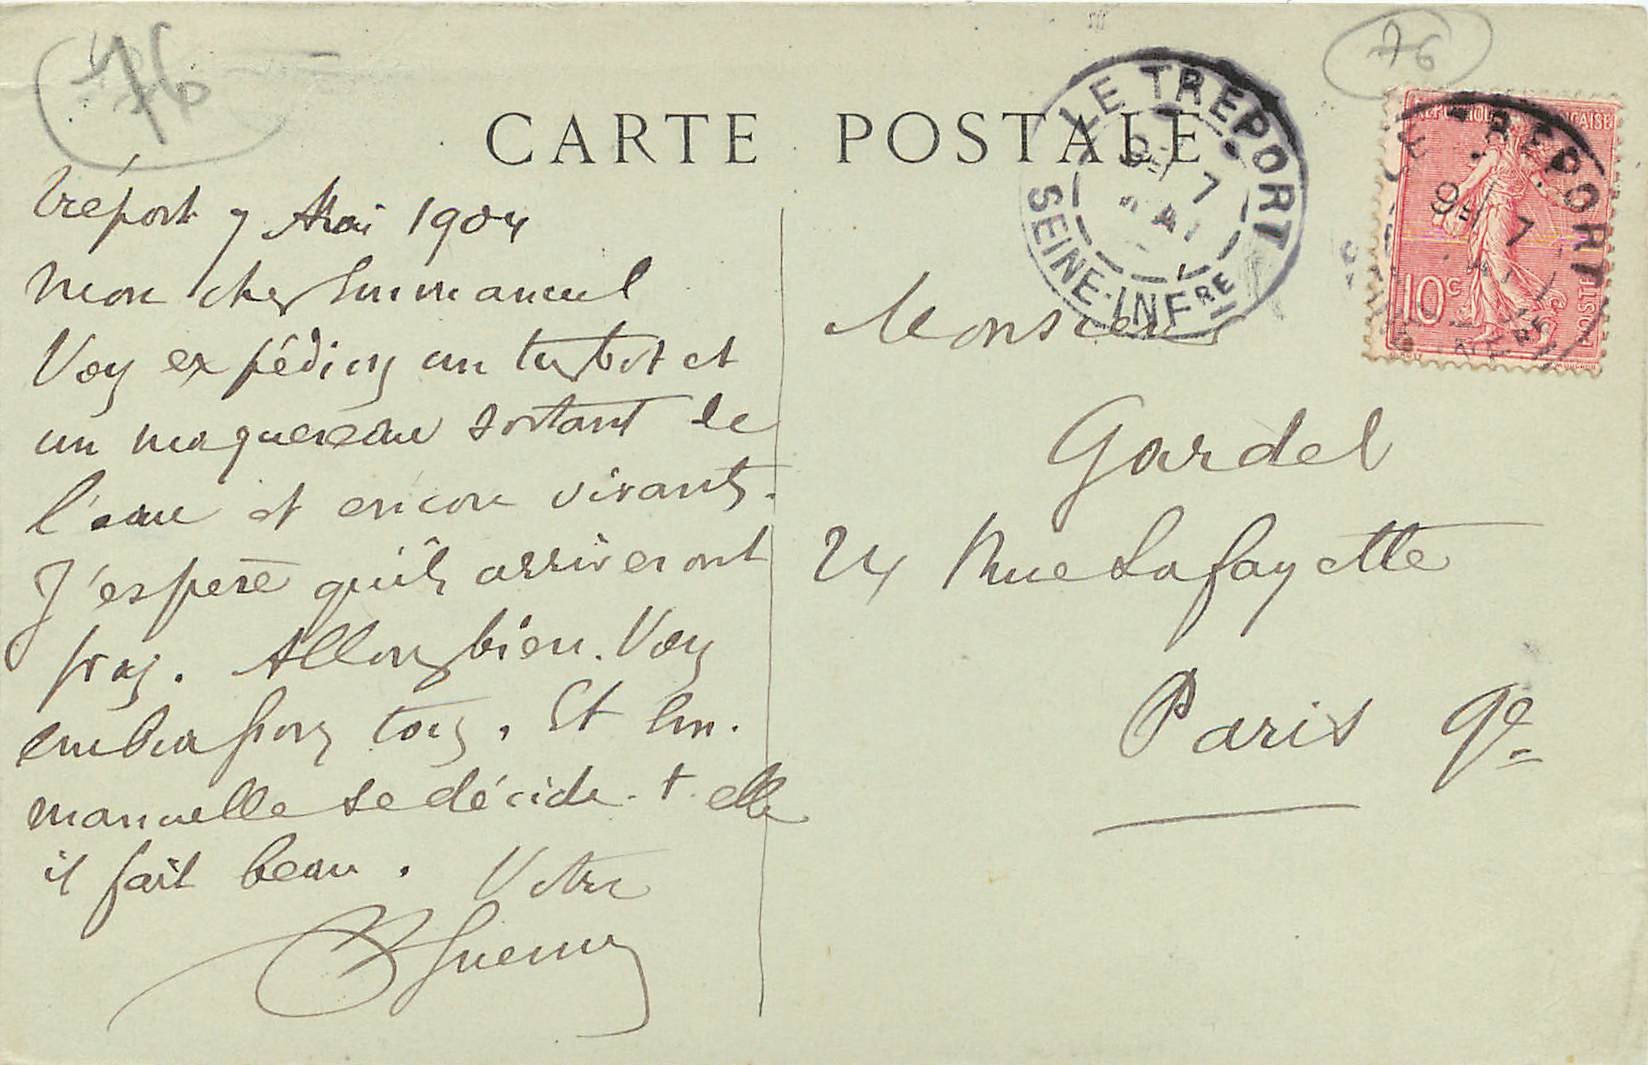 76
76
CARTE POSTALE
LE TREPORT
7
SEINE-INFRE
REPUBLIQUE FRANÇAISE
10c
POSTES
Tréport 7 Mai 1904
Mon cher Emmanuel
Voy expédions un turbot et
un maquereau sortant de
l'eau et encore vivants.
J'espere qu'ils arriveront
frais. Allons bien. Voy
embrassons tous. Et Em.
manuelle se décide-t-elle
il fait beau. Votre
Monsieur
Gardel
24 Rue Lafayette
Paris 9e